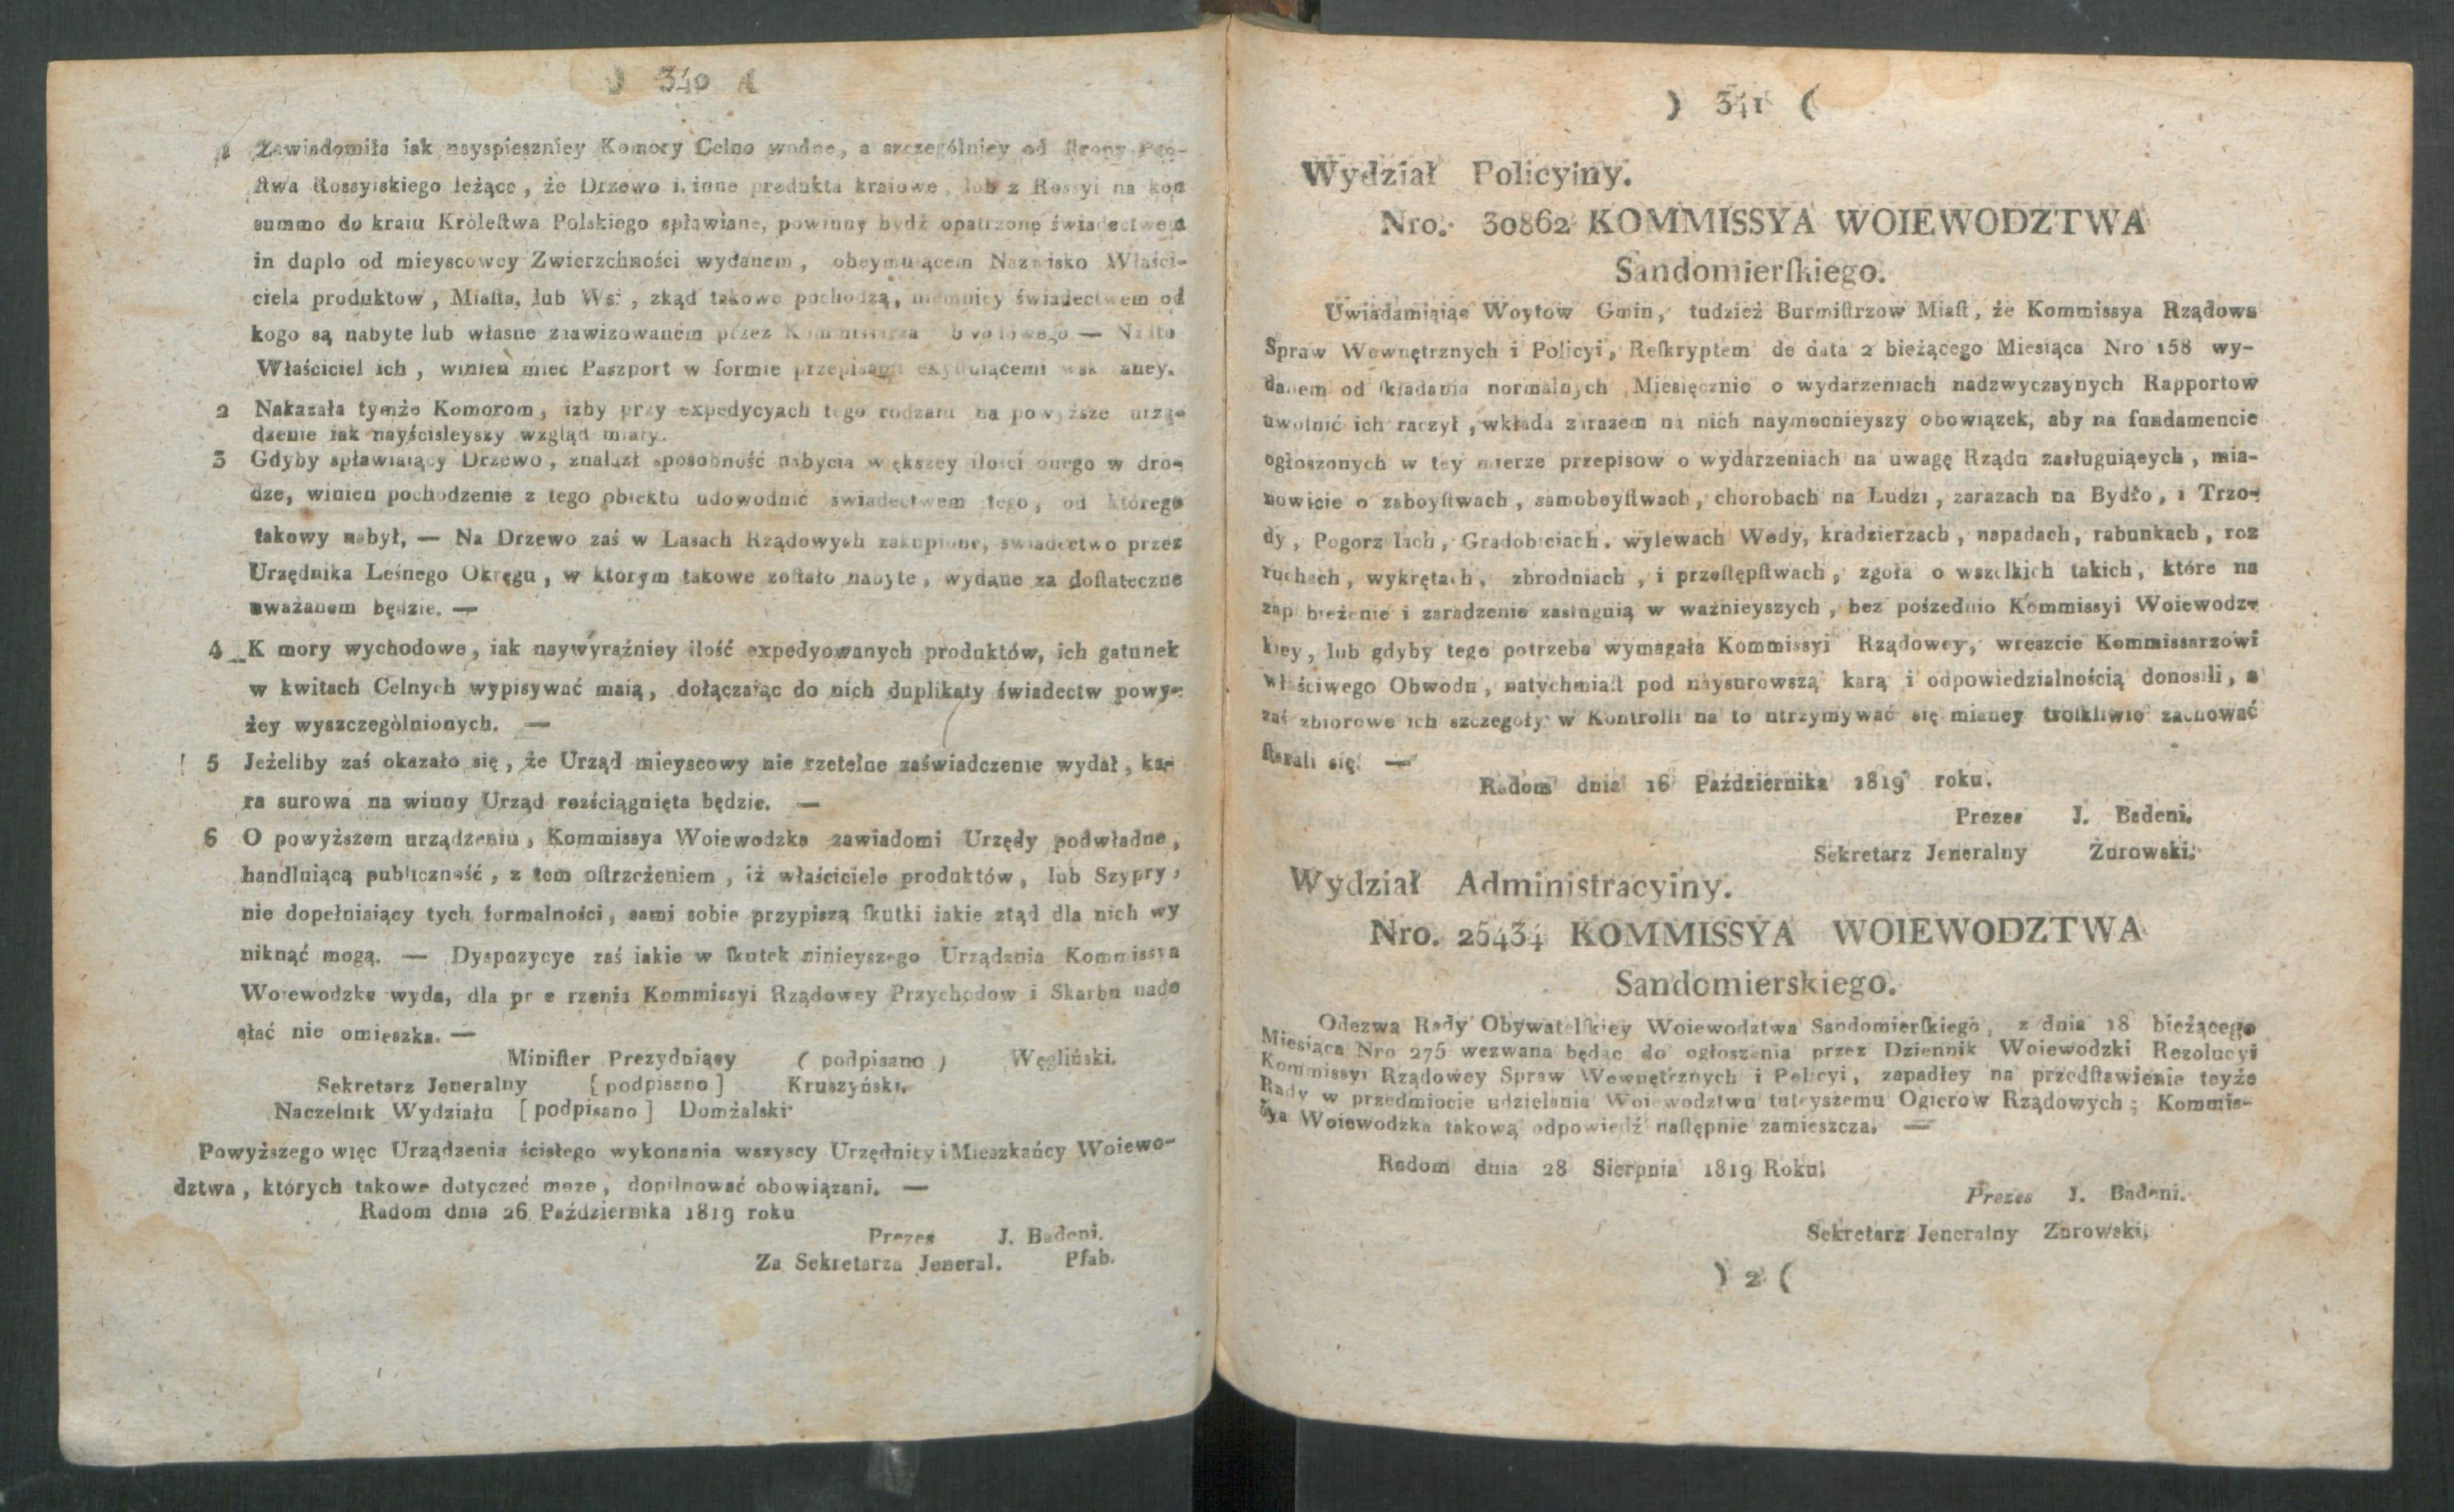 ) 340 (
1 Zawiadomiła iak nayspieszniey Komory Celno wodne, a szczególniey od ſtrony Pań-
ſtwa Rossyiskiego leżące, że Drzewo i inne produkta kraiowe, lub z Rossyi na kon
summo do kraiu Królestwa Polskiego spławiane, powinny bydź opatrzone świadectwem
in duplo od mieyscowey Zwierzchności wydanem, obeymuiącem Nazwisko Właści-
ciela produktow, Miaſta, lub Wsi, zkąd takowe pochodzą, niemniey świadectwem od
kogo są nabyte lub własne zaawizowanem przez Kommissarza — Nadto
Właściciel ich, winien mieć Paszport w formie przepisami exyſtuiącemi wskazaney.
2 Nakazała tymże Komorom, iżby przy expedycyach tego rodzaiu na powyższe urzą-
dzenie iak nayściśleyszy wzgląd miały.
3 Gdyby spławiaiący Drzewo, znalazł sposobność nabycia większey ilości onego w dro-
dze, winien pochodzenie z tego obiektu udowodnić świadectwem tego, od którego
takowy nabył, — Na Drzewo zaś w Lasach Rządowych zakupione, świadectwo przez
Urzędnika Leśnego Okręgu, w ktorym takowe zoſtało nabyte, wydane za doſtateczne
uważanem będzie. —
4 K mory wychodowe, iak naywyraźniey ilość expedyowanych produktów, ich gatunek
w kwitach Celnych wypisywać maią, dołączaiąc do nich duplikaty świadectw powy-
żey wyszczególnionych. —
5 Jeżeliby zaś okazało się, że Urząd mieyscowy nie rzetelne zaświadczenie wydał, ka-
ra surowa na winny Urząd rozściągnięta będzie. —
6 O powyższem urządzeniu, Kommissya Woiewodzka zawiadomi Urzędy podwładne,
handluiącą publiczność, z tem oſtrzeżeniem, iż właściciele produktów, lub Szypry,
nie dopełniaiący tych formalności, sami sobie przypiszą ſkutki iakie ztąd dla nich wy
niknąć mogą. — Dyspozycye zaś iakie w ſkutek ninieyszego Urządzenia Kommissya
Woiewodzka wyda, dla pr e rzenia Kommissyi Rządowey Przychodow i Skarbu nade
słać nie omieszka. —
Miniſter Prezyduiący ( podpisano ) Węgliński.
Sekretarz Jeneralny [ podpisano ] Kruszyński.
Naczelnik Wydziału [ podpisano ] Domżalski
Powyższego więc Urządzenia ścisłego wykonania wszyscy Urzędnicy i Mieszkańcy Woiewo-
dztwa, których takowe dotyczeć może, dopilnować obowiązani. —
Radom dnia 26 Października 1819 roku
Prezes J. Badeni.
Za Sekretarza Jeneral. Pfab.
) 341 (
Wydział Policyiny.
Nro. 30862 KOMMISSYA WOIEWODZTWA
Sandomierſkiego.
Uwiadamiaiąc Woytow Gmin, tudzież Burmiſtrzow Miaſt, że Kommissya Rządowa
Spraw Wewnętrznych i Policyi, Reſkryptem de data 2 bieżącego Miesiąca Nro 158 wy-
danem od ſkładania normalnych Miesięcznie o wydarzeniach nadzwyczaynych Rapportow
uwolnić ich raczył, wkłada zarazem na nich naymocnieyszy obowiązek, aby na fundamencie
ogłoszonych w tey mierze przepisow o wydarzeniach na uwagę Rządu zasługuiąeych, mia-
nowicie o zaboyſtwach, samoboyſtwach, chorobach na Ludzi, zarazach na Bydło, i Trzo-
dy, Pogorz lach, Gradobiciach, wylewach Wody, kradzierzach, napadach, rabunkach, roz
ruchach, wykrętach, zbrodniach, i przeſtępſtwach, zgoła o wszelkich takich, które na
zap bieżenie i zaradzenie zasługuią w ważnieyszych, bez pośzednio Kommissyi Woiewodz-
kiey, lub gdyby tego potrzeba wymagała Kommissyi Rządowey, wreszcie Kommissarzowi
właściwego Obwodu, natychmiaſt pod naysurowszą karą i odpowiedzialnością donosili, a
zaś zbiorowe ich szczegoły w Kontrolli na to utrzymywać się mianey troſkliwie zachować
ſtarali się. —
Radom dnia 16 Października 1819 roku.
Prezes J. Badeni.
Sekretarz Jeneralny Żurowski.
Wydział Administracyiny.
Nro. 25434 KOMMISSYA WOIEWODZTWA
Sandomierskiego.
Odezwą Rady Obywatelſkiey Woiewodztwa Sandomierſkiego, z dnia 18 bieżącego
Miesiąca Nro 275 wezwana będąc do ogłoszenia przez Dziennik Woiewodzki Rezolucyi
Kommissyi Rządowey Spraw Wewnętrznych i Policyi, zapadłey na przedſtawienie teyże
Rady w przedmiocie udzielania Woiewodztwu tuteyszemu Ogierow Rządowych; Kommis-
sya Woiewodzka takową odpowiedź naſtępnie zamieszcza. —
Radom dnia 28 Sierpnia 1819 Roku.
Prezes J. Badeni.
Sekretarz Jeneralny Zurowski.
) 2 (